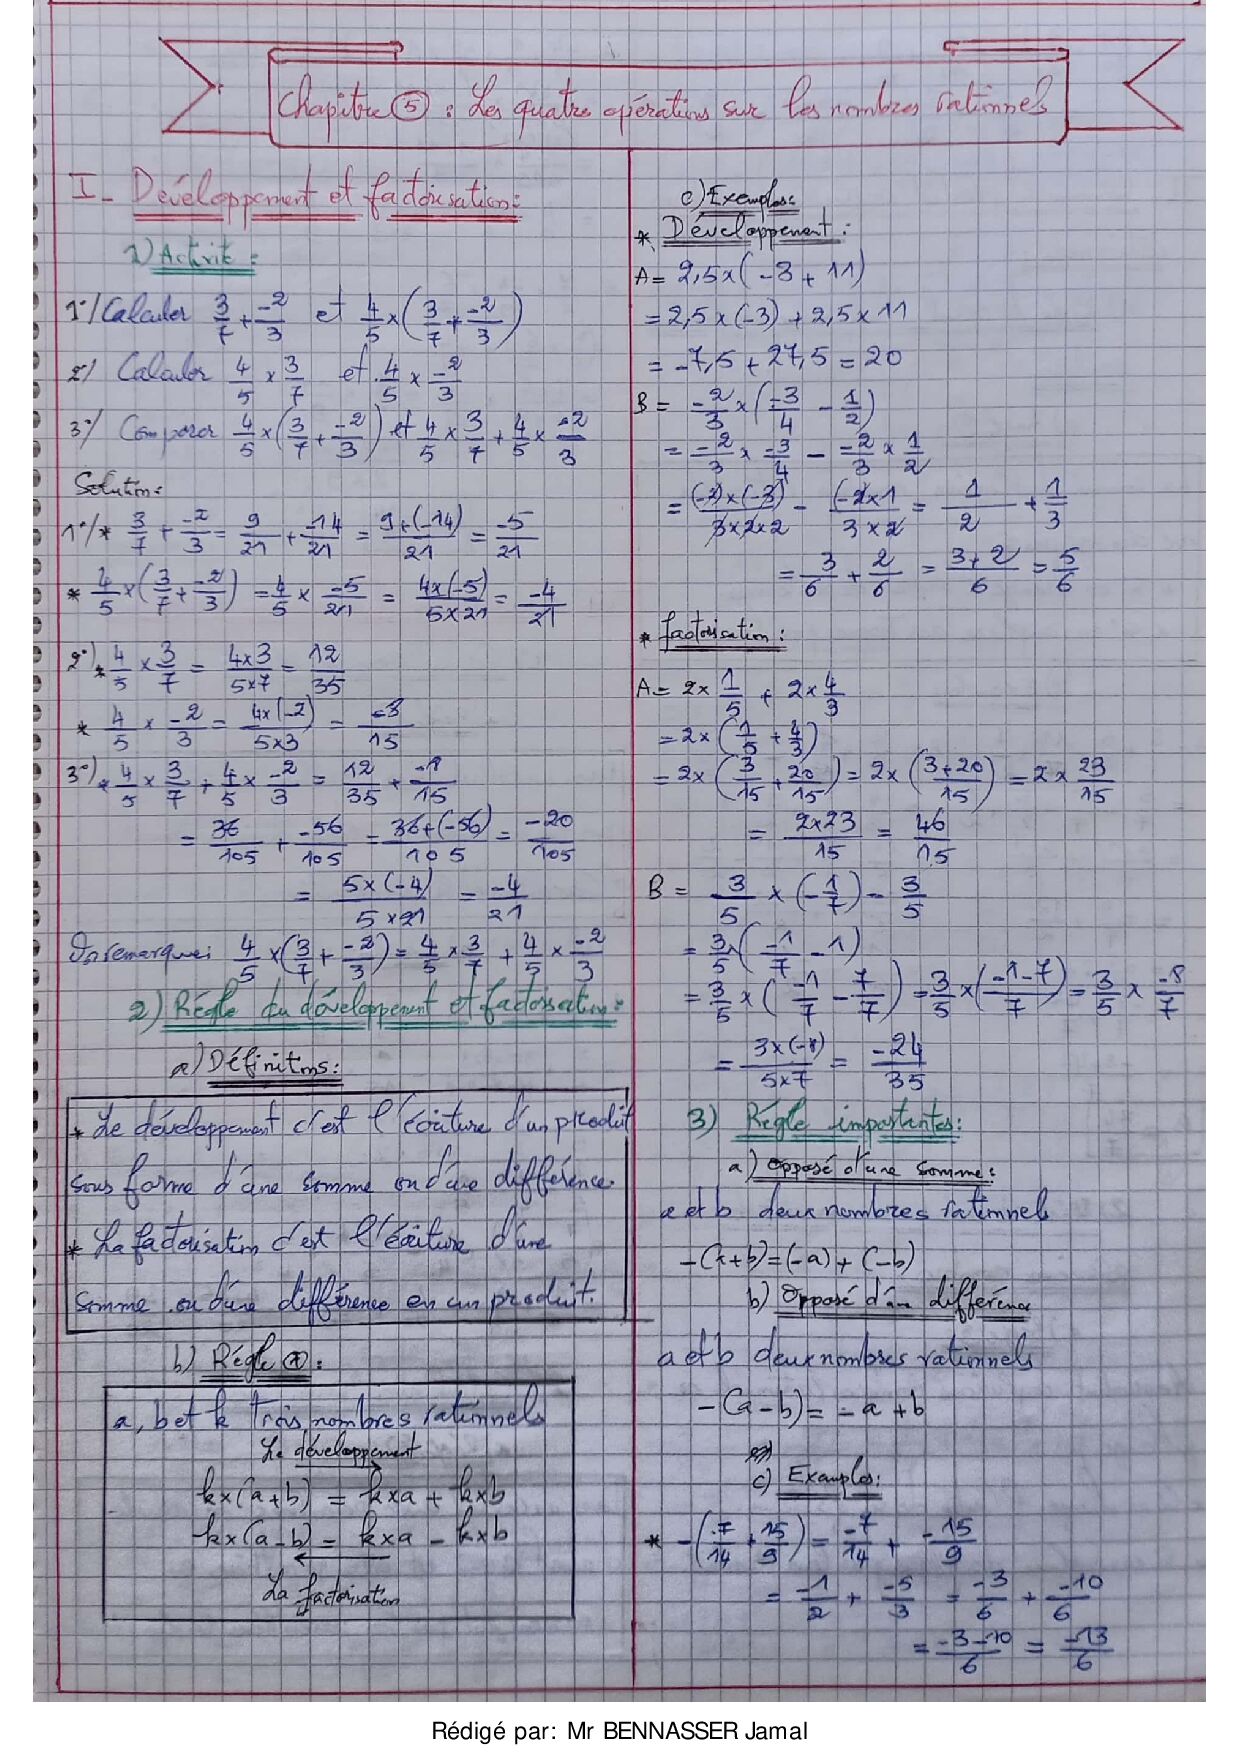 Chapitre ⑤ : Les quatre opérations sur les nombres rationnels
I - Développement et factorisation :
1) Activité :
1°/ Calculer 3/7 + -2/3 et 4/5 × (3/7 + -2/3)
2°/ Calculer 4/5 × 3/7 et 4/5 × -2/3
3°/ Comparer 4/5 × (3/7 + -2/3) et 4/5 × 3/7 + 4/5 × -2/3
Solution :
1°/ * 3/7 + -2/3 = 9/21 + -14/21 = 9+(-14)/21 = -5/21
* 4/5 × (3/7 + -2/3) = 4/5 × -5/21 = 4×(-5)/5×21 = -4/21
2°) * 4/5 × 3/7 = 4×3/5×7 = 12/35
* 4/5 × -2/3 = 4×(-2)/5×3 = -8/15
3°) * 4/5 × 3/7 + 4/5 × -2/3 = 12/35 + -8/15
= 36/105 + -56/105 = 36+(-56)/105 = -20/105
= 5×(-4)/5×21 = -4/21
On remarque : 4/5 × (3/7 + -2/3) = 4/5 × 3/7 + 4/5 × -2/3
2) Règle du développement et factorisation :
a) Définitions :
* Le développement c'est l'écriture d'un produit
sous forme d'une somme ou d'une différence.
* La factorisation c'est l'écriture d'une
somme ou d'une différence en un produit.
b) Règle ① :
a, b et k trois nombres rationnels
Le développement
k×(a+b) = k×a + k×b
k×(a-b) = k×a - k×b
La factorisation
c) Exemples :
* Développement :
A = 2,5×(-3 + 11)
= 2,5×(-3) + 2,5×11
= -7,5 + 27,5 = 20
B = -2/3 × (-3/4 - 1/2)
= -2/3 × -3/4 - -2/3 × 1/2
= (-2)×(-3)/3×2×2 - (-2×1/3×2 = 1/2 + 1/3
= 3/6 + 2/6 = 3+2/6 = 5/6
* factorisation :
A = 2× 1/5 + 2× 4/3
= 2× (1/5 + 4/3)
= 2× (3/15 + 20/15) = 2× (3+20/15) = 2 × 23/15
= 2×23/15 = 46/15
B = 3/5 × (-1/7) - 3/5
= 3/5 × (-1/7 - 1)
= 3/5 × (-1/7 - 7/7) = 3/5 × (-1-7/7) = 3/5 × -8/7
= 3×(-8)/5×7 = -24/35
3) Règle importantes :
a) opposé d'une somme :
a et b deux nombres rationnels
-(a+b) = (-a) + (-b)
b) opposé d'une différence
a et b deux nombres rationnels
-(a-b) = -a + b
c) Examples :
* -(7/14 + 15/9) = -7/14 + -15/9
= -1/2 + -5/3 = -3/6 + -10/6
= -3-10/6 = -13/6
Rédigé par: Mr BENNASSER Jamal